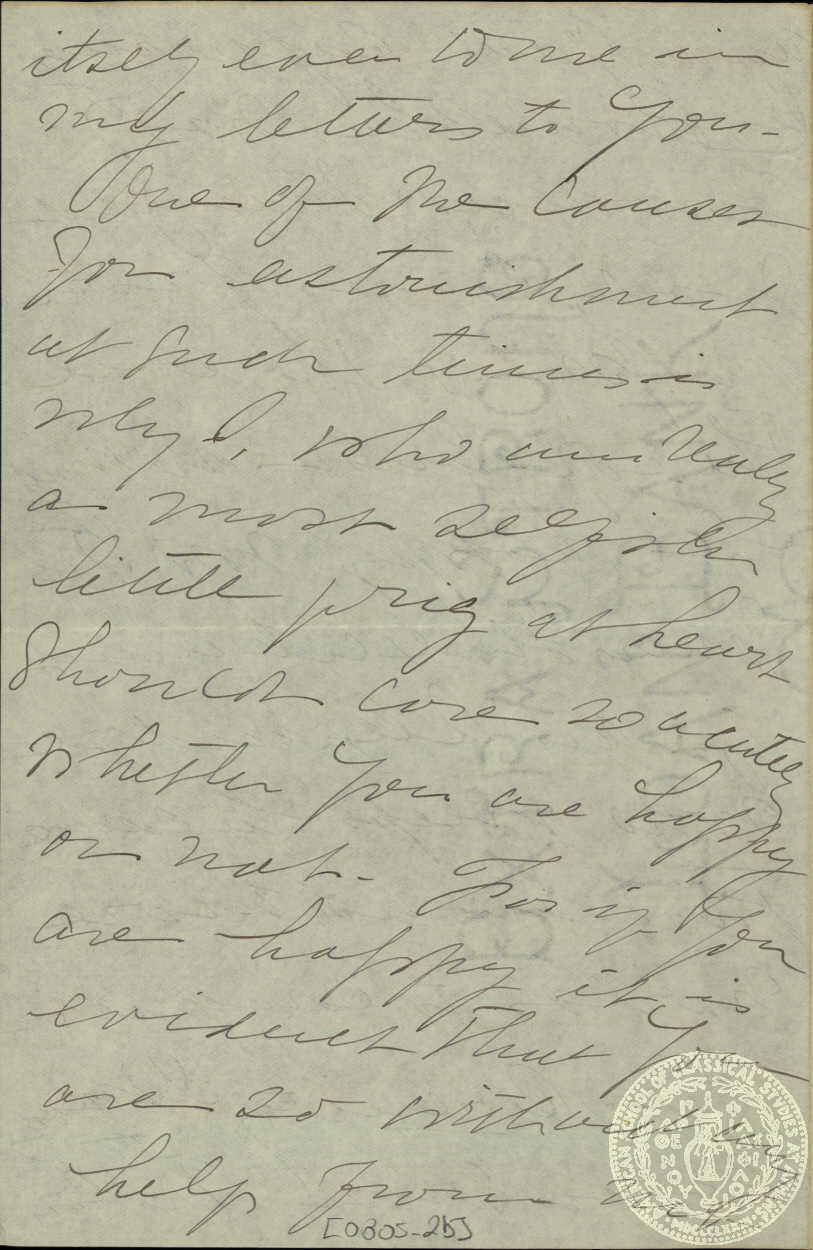 itself even to me in
my letters to you-
One of the causes
for astonishment
at such times is
why I, who am really
a most selfish
little prig at heart
should care so acutely
whether you are happy
or not- For if you
are happy it is
evident that you
are so without any
help from me
[0805-25]
AN SCHOOL OF CLASSICAL STUDIES AT
MDCCCLXXXI